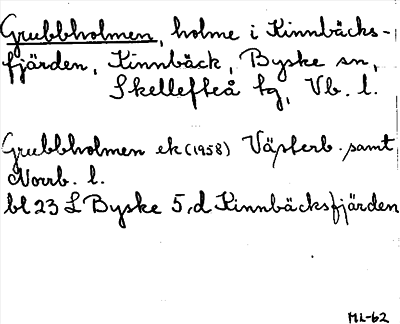 Grubbholmen, holme i Kinnbäcks-
fjärden, Kinnbäck, Byske sn,
Skellefteå tg, Vb. l.
Grubbholmen ek (1958) Västerb. samt
Norrb. l.
bl 23 L Byske 5,d Kinnbäcksfjärden
ML-62